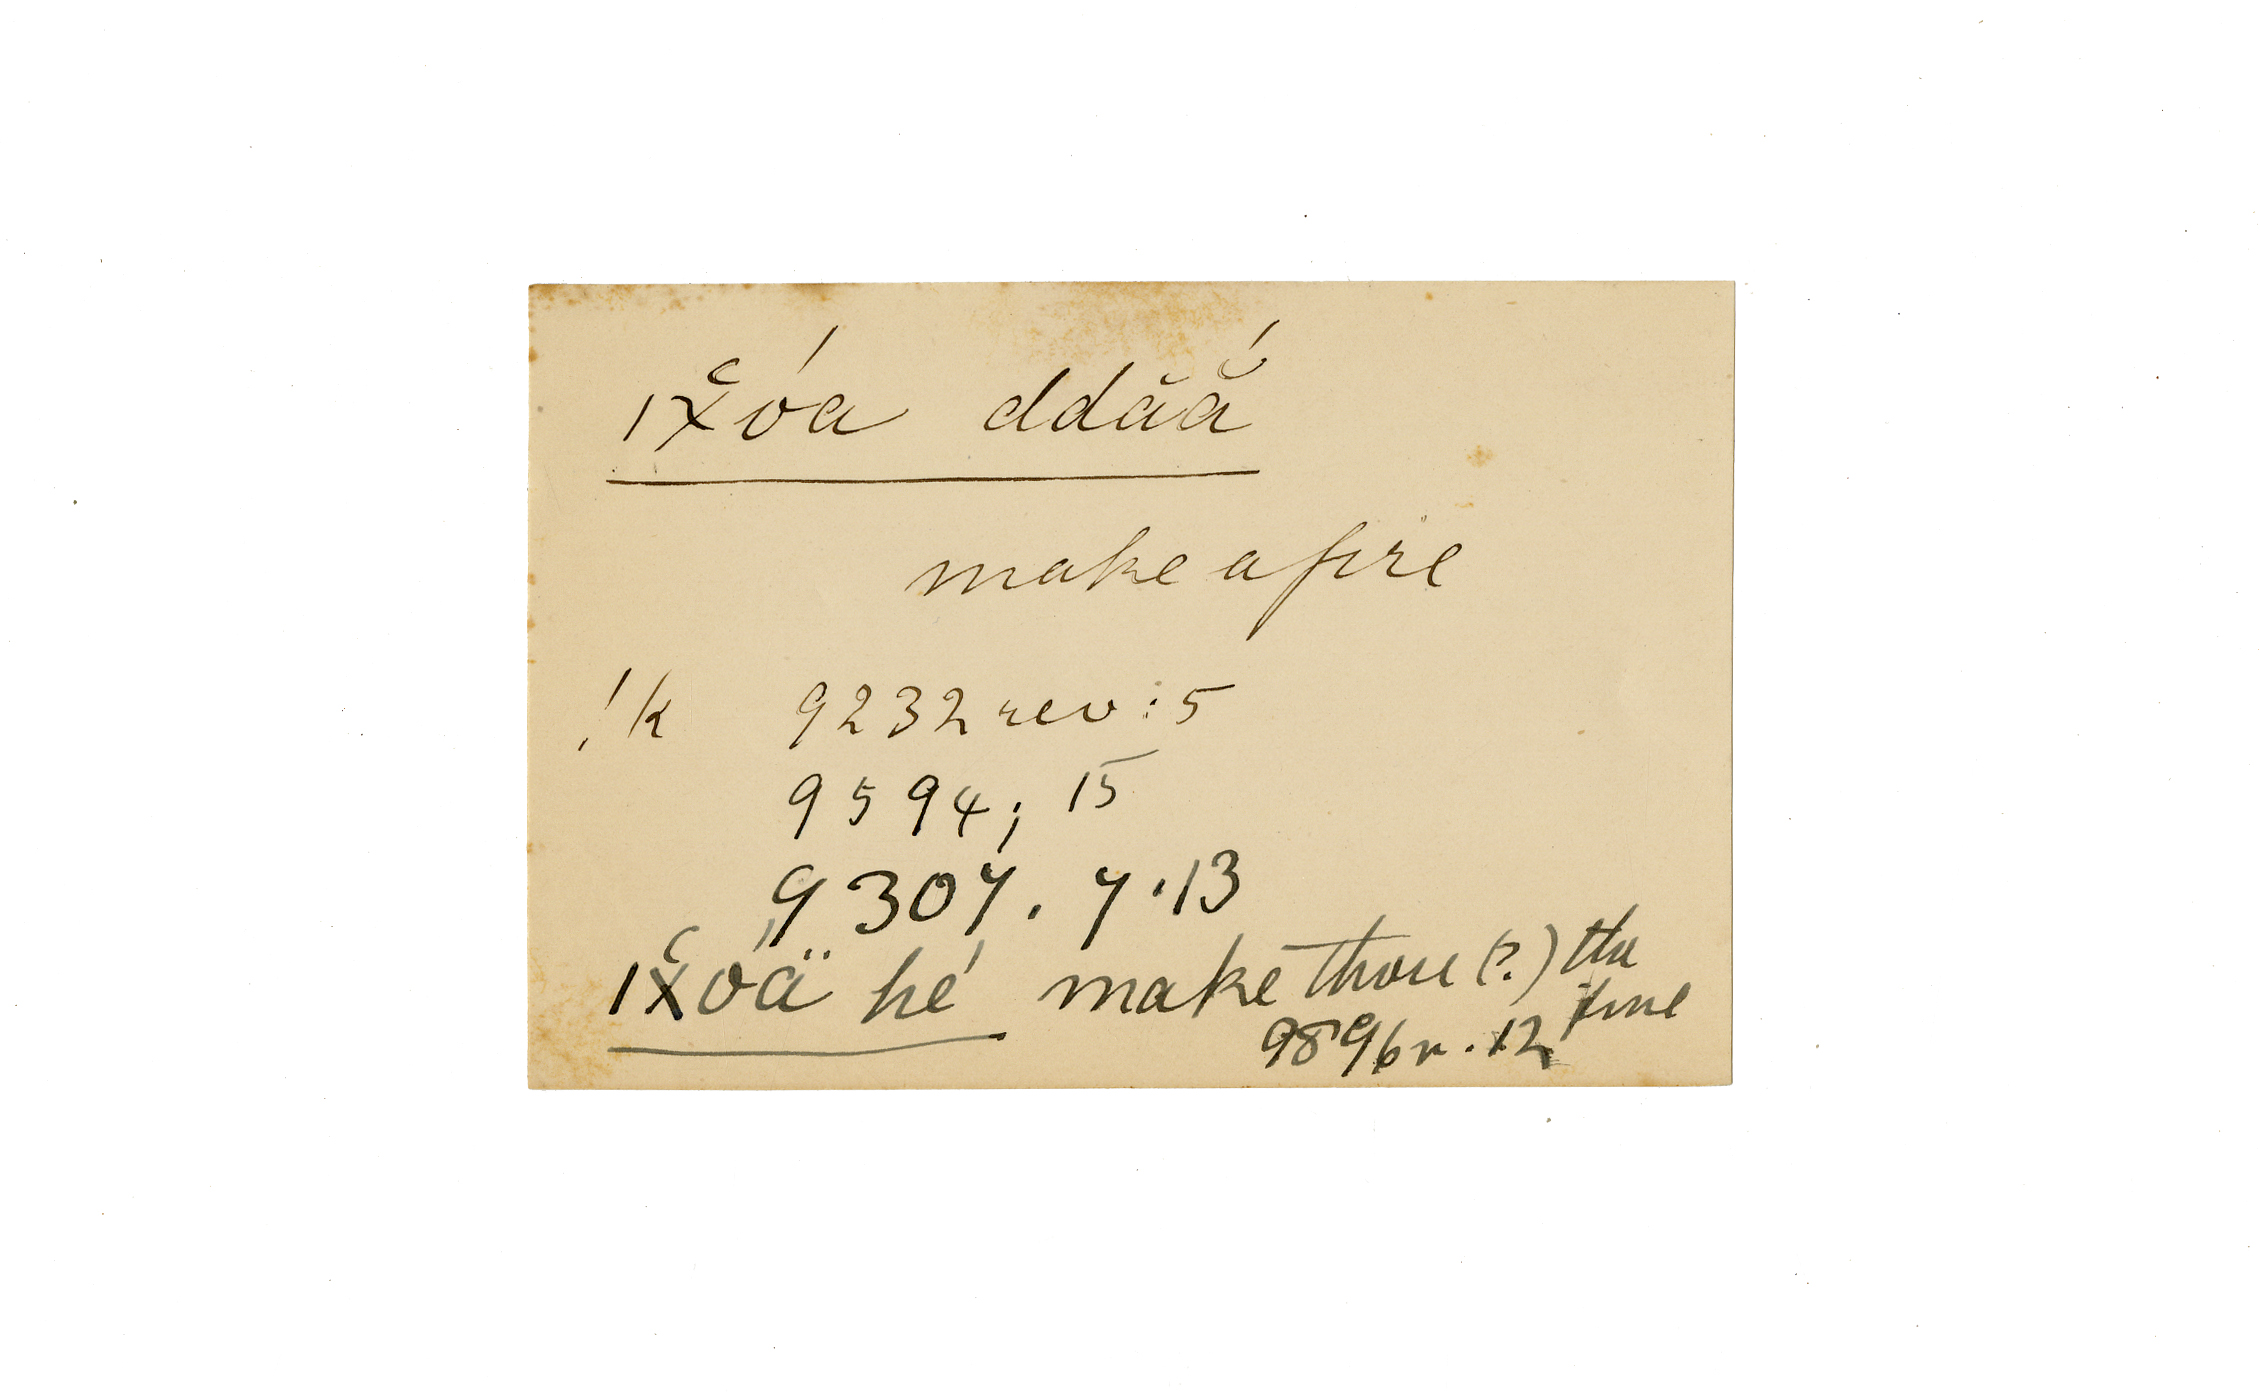 ıx̆óa ddăắ
make a fire
!k 9232 rev: 5
9594; 15
9307. 7.13
ıx̆óä hé make those (?) the fire
9896 r. 12